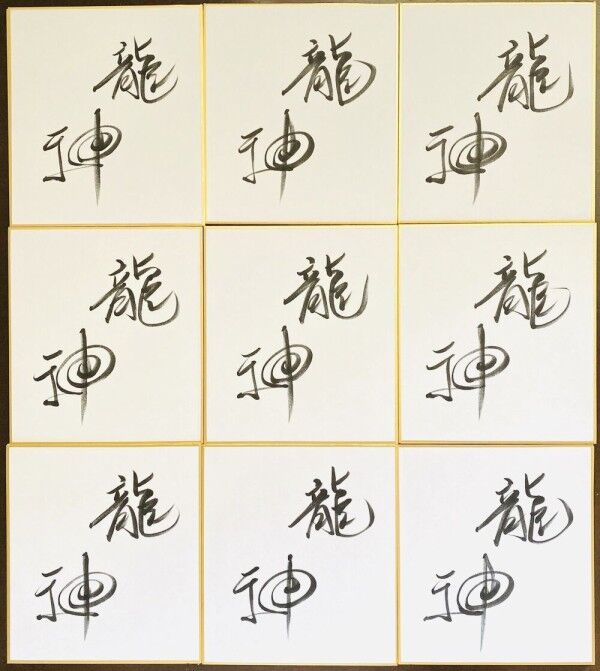 龍
神
龍
神
龍
神
龍
神
龍
神
龍
神
龍
神
龍
神
龍
神